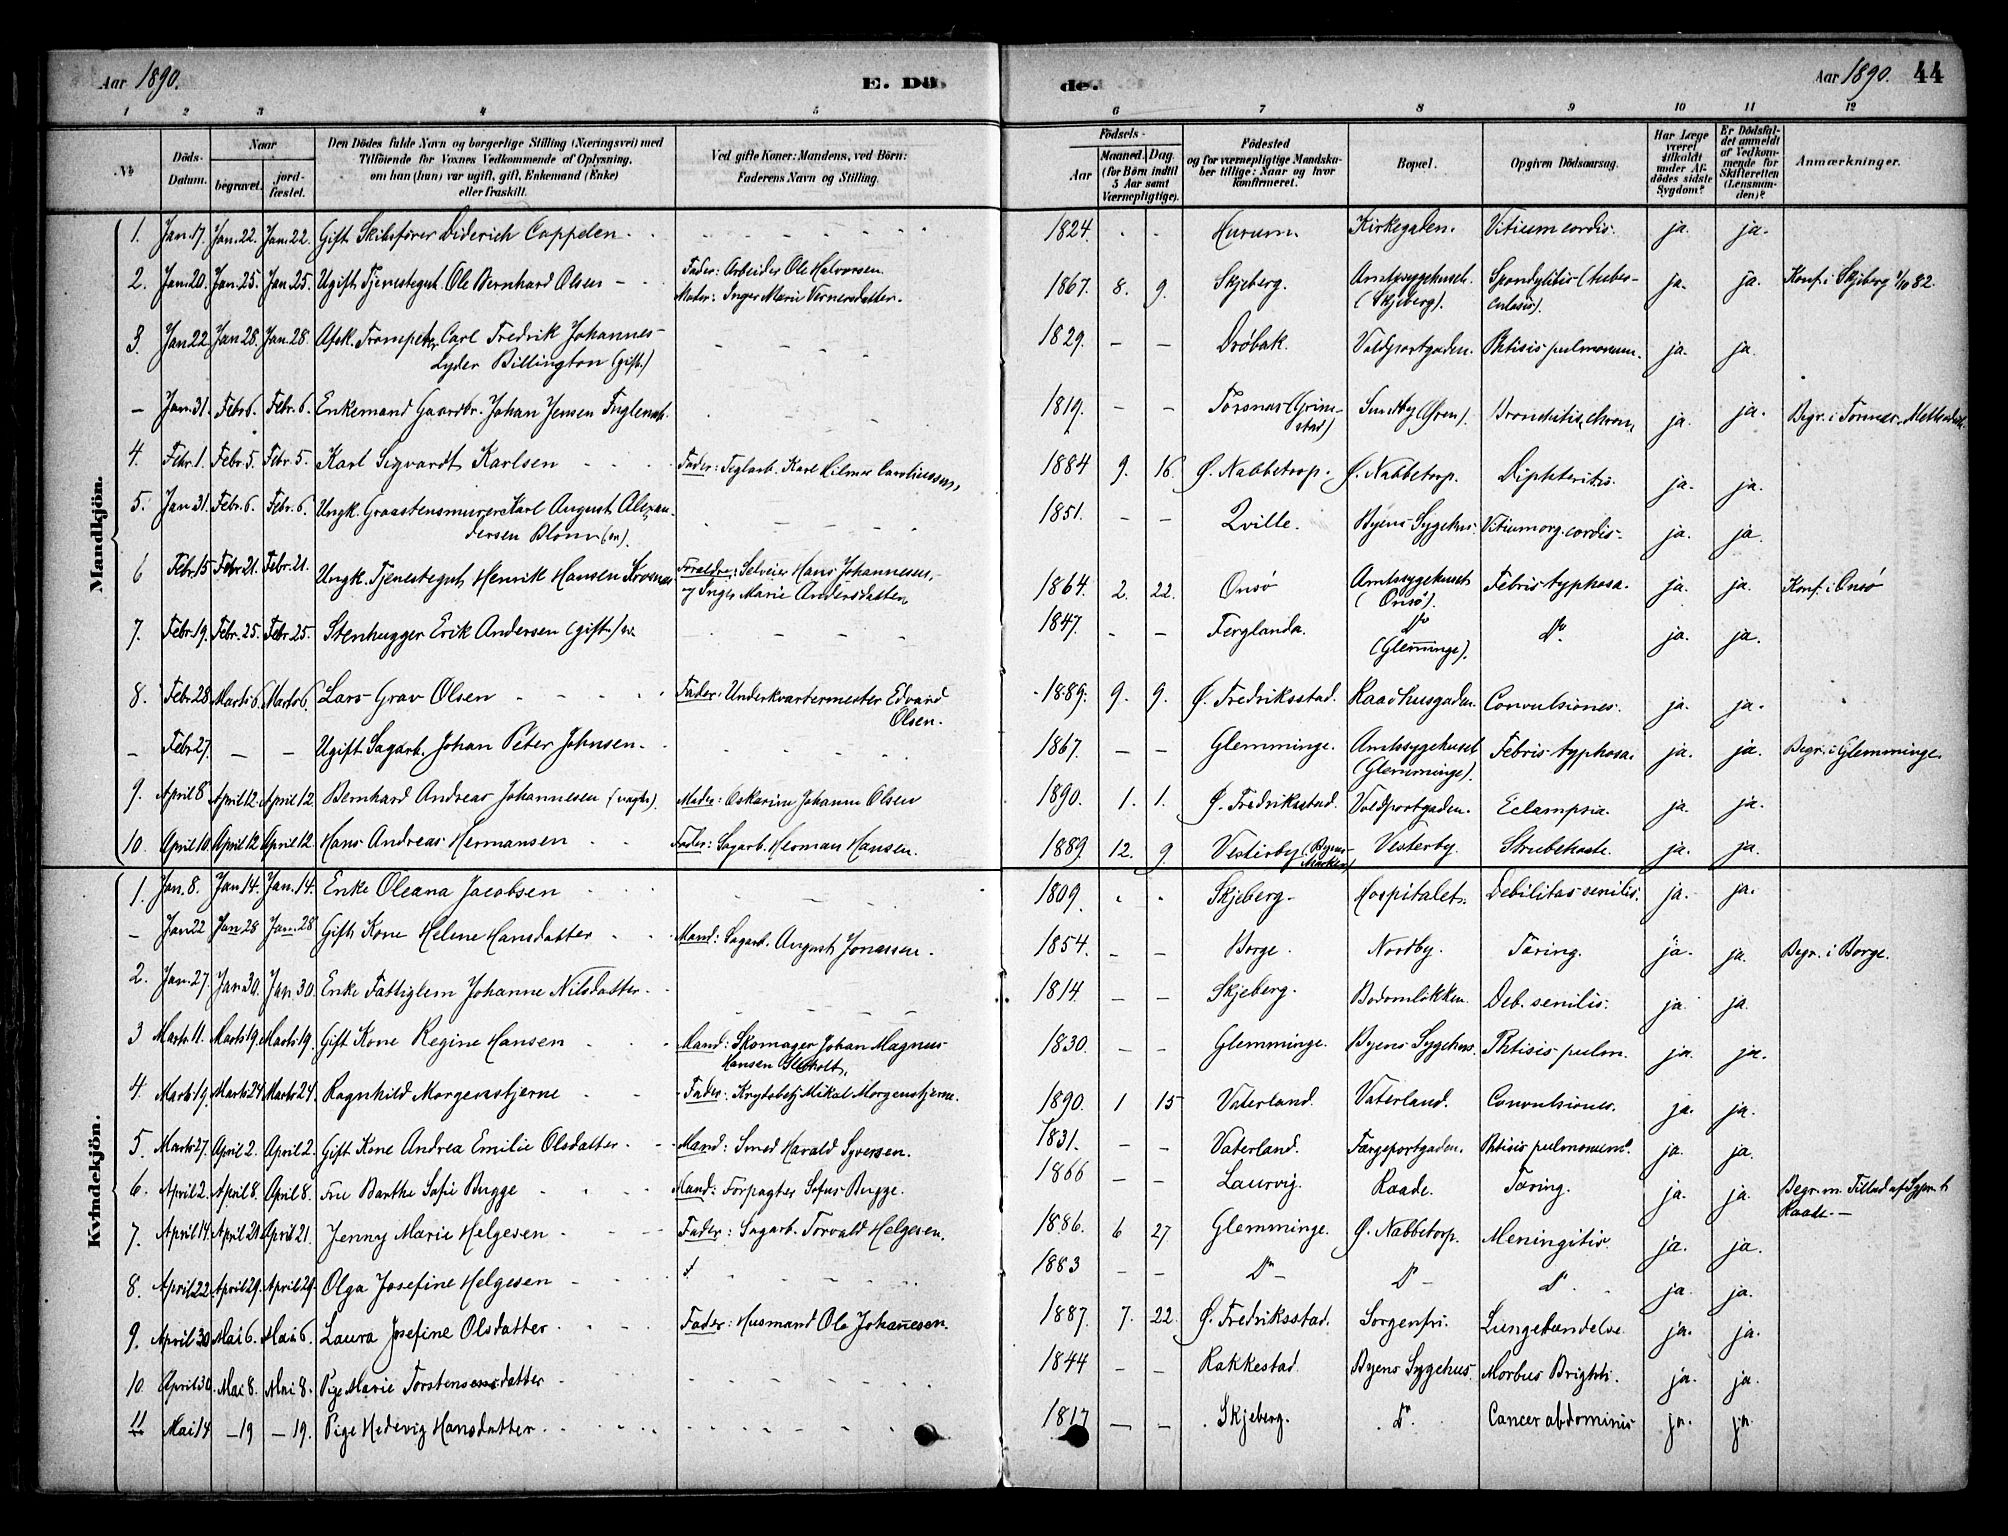 Aar 1890. E. Dö de. Aar 1890. 44
1 2 3 4 5 6 7 8 9 10 11 12
No. Döds-Datum. Naar begravet. jordfæstet. Den Dödes fulde Navn og borgerlige Stilling (Næringsvei) med Tilföiende for Voxnes Vedkommende af Oplysning, om han (hun) var ugift, gift, Enkemand (Enke) eller fraskilt. Ved gifte Koner: Mandens, ved Börn: Faderens Navn og Stilling. Födsels- Aar Maaned. Dag. (for Börn indtil 5 Aar samt Værnepligtige). Födested og for værnepligtige Mandskaber tillige: Naar og hvor konfirmeret. Bopæl. Opgiven Dödsaarsag. Har Læge været tilkaldt under Afdödes sidste Sygdom? Er Dödsfaldet anmeldt af Vedkommende for Skifteretten (Lensmanden)? Anmærkninger.
Mandkjön.
1. Jan. 17. Jan. 22. Jan. 22. Gift Skibsfører Diderich Cappelen. 1824. Hurum. Kirkegaden. Vitium cordis. ja. ja.
2. Jan. 20. Jan. 25. Jan. 25. Ugift Tjenestegut Ole Bernhard Olsen Fader: Arbeider Ole Halvorsen. Moder: Inger Marie Vernersdatter. 1867. 8. 9. Skjeberg. Amtssygehuset (Skjeberg). Spondylitis (tuberculosis). ja. ja. Konf. i Skjeberg 1/10 82.
3. Jan. 22 Jan. 28. Jan. 28. Afsk. Trompeter Carl Fredrik Johannes Lyder Billington (gift.) 1829. — — Drøbak. Voldportgaden. Phtisis pulmonum. ja. ja.
— Jan. 31. Febr. 6. Febr. 6. Enkemand Gaardbr. Johan Jensen 1819. — — Torsnæs (Grimstad) Sundby (Øren). Bronchitis chron. ja. ja. Begr. i Torsnæs
4. Febr. 1. Febr. 5. Febr. 5. Karl Sigvardt Karlsen Fader: Teglarb. Karl 1884 9. 16. Ø. Nabbetorp. Ø. Nabbetorp. Diphteritis. ja. ja.
5. Jan. 31. Febr. 6. Febr. 6. Ungk. Graastensmurer Karl August Alexandersen Blom (sv). 1851. — — Qville. Byens Sygehus. Vitium org. cordis. ja. ja.
6 Febr. 15 Febr. 21. Febr. 21. Ungk. Tjenestegut Henrik Hansen Forældre: Selveier Hans Johannessen og Inger Marie Andersdatter 1864 2. 22. Onsø Amtssygehuset (Onsø). Febris typhosa. ja. ja. Konf. i Onsø
7. Febr. 19. Febr. 25. Febr. 25. Stenhugger Erik Andersen (gift.) sv. 1847. — Ferglanda. Do (Glemminge). Do. ja. ja.
8. Febr. 28 Marts 6. Marts 6. Lars Grav Olsen Fader: Underkvartermester Edvard Olsen. 1889. 9. 9. Ø. Fredriksstad. Raadhusgaden. Convulsiones. ja. ja.
— Febr. 27. — — Ugift Sagarb. Johan Peter Johnsen. 1867. — — Glemminge. Amtssygehuset (Glemminge). Febris typhosa. ja. ja. Begr. i Glemminge.
9. April 8 April 12. April 12. Bernhard Andreas Johannesen (uægte). Moder: Oskarine Johanne Olsen 1890. 1. 1. Ø. Fredriksstad. Voldportgaden. Eclampsia. ja. ja.
10. April 10. April 12 April 12. Hans Andreas Hermansen Fader: Sagarb. Herman Hansen. 1889. 12. 9. Vesterby (Byens Marker) Vesterby. Strubehoste. ja. ja.
Kvindekjön.
1. Jan. 8. Jan. 14. Jan. 14. Enke Oleana Jacobsen 1809. Skjeberg. Hospitalet. Debilitas senilis. ja. ja.
— Jan. 22 Jan. 28 Jan. 28 Gift Kone Helene Hansdatter Mand: Sagarb. August Jonassen. 1854. — — Borge. Nordby. Tæring. ja. ja. Begr. i Borge.
2. Jan. 27. Jan. 30. Jan. 30. Enke Fattiglem Johanne Nilsdatter. 1814. — — Skjeberg. Bodomløkken. Deb. senilis. ja. ja.
3 Marts 11. Marts 19. Marts 19. Gift Kone Regine Hansen Mand: Skomager Johan Magnus Hansen 1830. — — Glemminge. Byens Sygehus. Phtisis pulm. ja. ja.
4. Marts 19. Marts 24 Marts 24. Ragnhild Morgenstjerne Fader: Mikal Morgenstjerne. 1890. 1 15 Vaterland. Vaterland. Convulsiones. ja. ja.
5. Marts 27. April 2. April 2. Gift Kone Andrea Emilie Olsdatter Mand: Smed Harald Syversen. 1831. — — Vaterland. Færgeportgaden. Phtisis pulmonum. ja. ja.
6. April 2. April 8. April 8. Fru Barthe Sofie Bugge Mand: Forpagter Sofus Bugge. 1866 — — Laurvig. Raade. Tæring. ja. ja. Begr. m. Tillad. af Sgpr. t. Raade. —
7. April 14. April 21 April 21. Jenny Marie Helgesen Fader: Sagarb. Torvald Helgesen. 1886. 6 27 Glemminge. Ø. Nabbetorp. Meningitis. ja. ja.
8. April 22. April 29. April 29. Olga Josefine Helgesen 1883 — — Do Do Do. ja. ja.
9. April 30 Mai 6. Mai 6. Laura Josefine Olsdatter Fader: Husmand Ole Johannesen. 1887. 7. 22. Ø. Fredriksstad. Sorgenfri. Lungebetændelse. ja. ja.
10. April 30. Mai 8. Mai 8. Pige Marie Torstensdatter 1844 — — Rakkestad. Byens Sygehus. Morbus Brighti. ja. ja.
11 Mai 14 — 19 — 19. Pige Hedevig Hansdatter 1817 — — Skjeberg. Do. Cancer abdominis ja. ja.